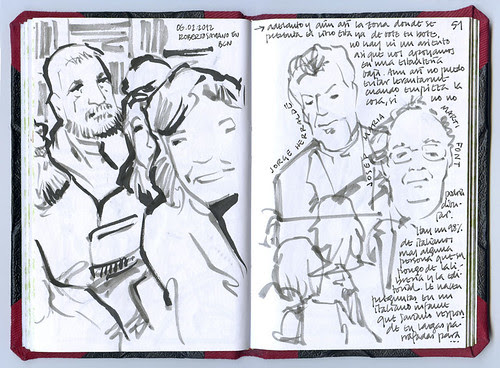 05.02.2012
ROBERTO SAVIANO EN
BCN
51
→ adelanto y aún así la zona donde se
presenta el libro está ya de bote en bote,
no hay ni un asiento
así que nos apoyamos
en una estantería
baja. Aún así no puedo
evitar levantarme
cuando empieza la
cosa, si no no
JORGE HERRALDE
JOSEP MARIA
MARTI FONT
podría
dibu-
jar.
Hay un 98%
de italianos
más alguna
persona que su-
pongo de la li-
brería y la edi-
torial. Le hacen
preguntas en un
italiano infame
que Saviano respon-
de en largas pa-
rrafadas para
...